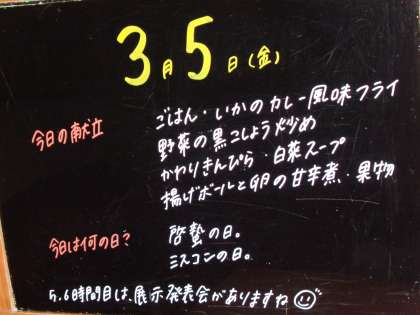 3月5日(金)
今日の献立
ごはん・いかのカレー風味フライ
野菜の黒こしょう炒め
かわりきんぴら・白菜スープ
揚げボールと卵の甘辛煮・果物
今日は何の日?
啓蟄の日。
ミスコンの日。
5,6時間目は、展示発表会がありますね